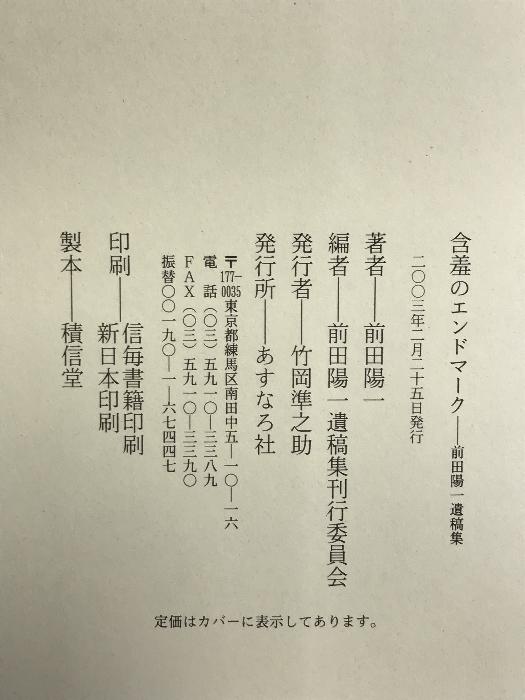 含羞のエンドマーク――前田陽一遺稿集
二〇〇三年二月二十五日発行
著者――前田陽一
編者――前田陽一遺稿集刊行委員会
発行者――竹岡準之助
発行所――あすなろ社
〒177-0035東京都練馬区南田中五―一〇―一六
電話(〇三)五九一〇―三三八九
FAX(〇三)五九一〇―三三九〇
振替〇〇一九〇―一―六七四四七
印刷――信毎書籍印刷
新日本印刷
製本――積信堂
定価はカバーに表示してあります。